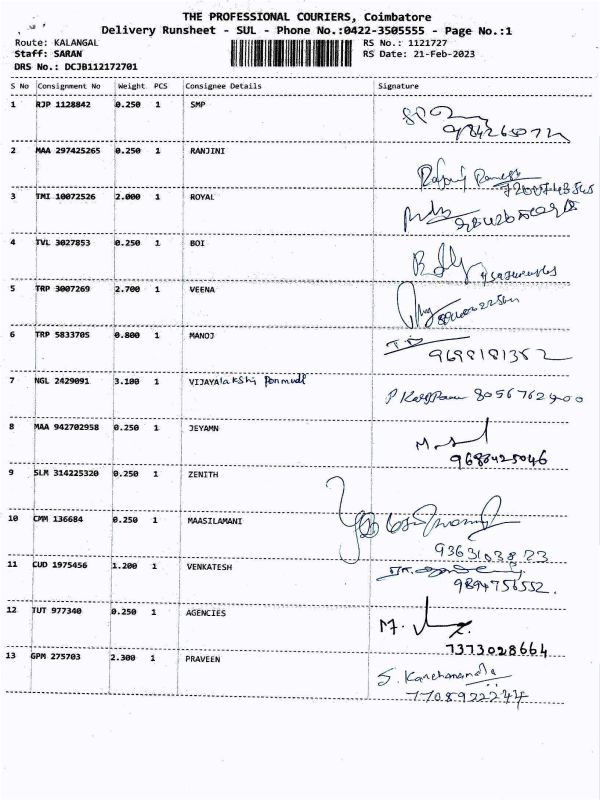 THE PROFESSIONAL COURIERS, Coimbatore
Delivery Runsheet - SUL - Phone No.:0422-3505555 - Page No.:1
Route: KALANGAL RS No.: 1121727
Staff: SARAN RS Date: 21-Feb-2023
DRS No.: DCJB112172701
S No Consignment No Weight PCS Consignee Details Signature
1 RJP 1128842 0.250 1 SMP
2 MAA 297425265 0.250 1 RANJINI
3 TMI 10072526 2.000 1 ROYAL
4 TVL 3027853 0.250 1 BOI
5 TRP 3007269 2.700 1 VEENA
6 TRP 5833705 0.800 1 MANOJ
9698181382
7 NGL 2429091 3.100 1 VIJAYAlakshi Ponmudi
8056762900
8 MAA 942702958 0.250 1 JEYAMN
9688425046
9 SLM 314225320 0.250 1 ZENITH
10 CMM 136684 0.250 1 MAASILAMANI
9363103823
11 CUD 1975456 1.200 1 VENKATESH
9894756552.
12 TUT 977340 0.250 1 AGENCIES
7373028664
13 GPM 275703 2.300 1 PRAVEEN
S. Kanchanamala
7708922244